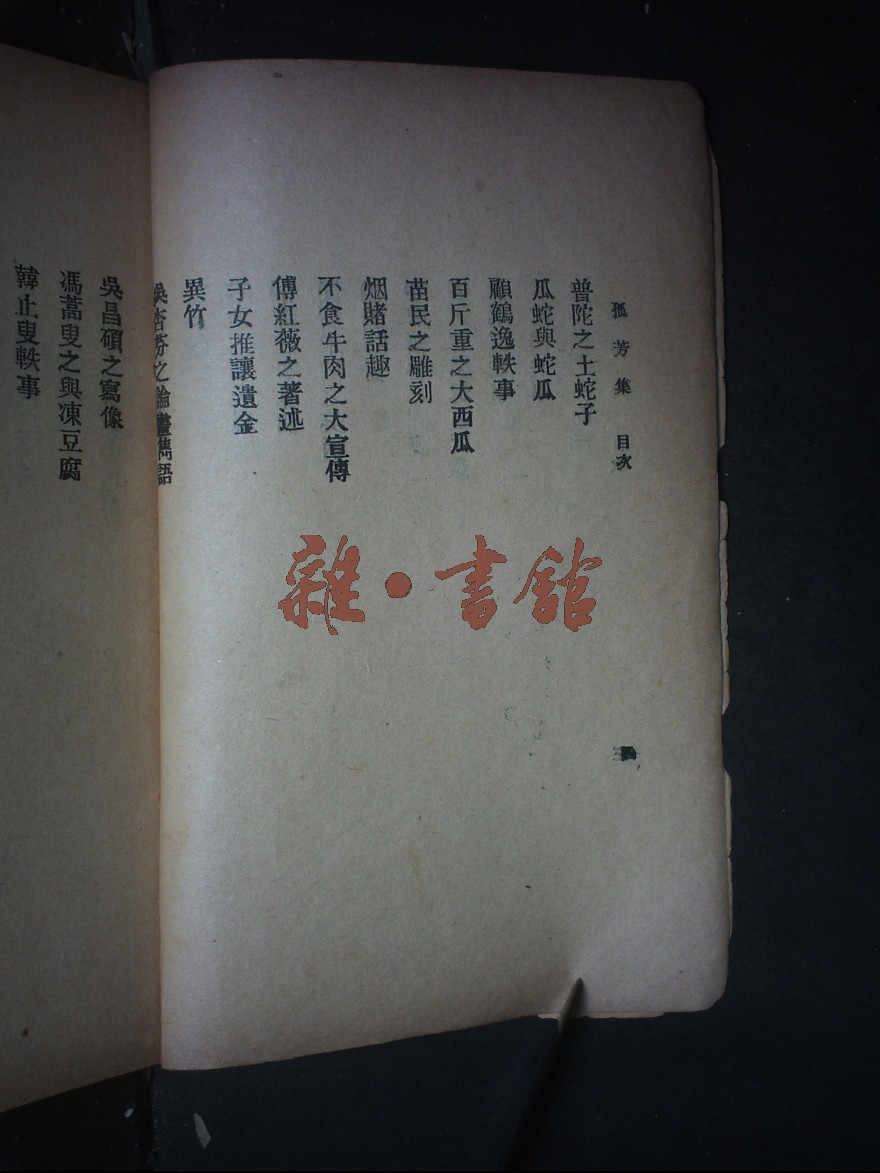 孤芳集 目次
普陀之土蛇子
瓜蛇與蛇瓜
顧鶴逸軼事
百斤重之大西瓜
苗民之雕刻
烟賭話趣
不食牛肉之大宣傳
傅紅薇之著述
子女推讓遺金
異竹
吳杏芬之論畫雋語
吳昌碩之寫像
馮蒿叟之與凍豆腐
韓止叟軼事
雜·書館